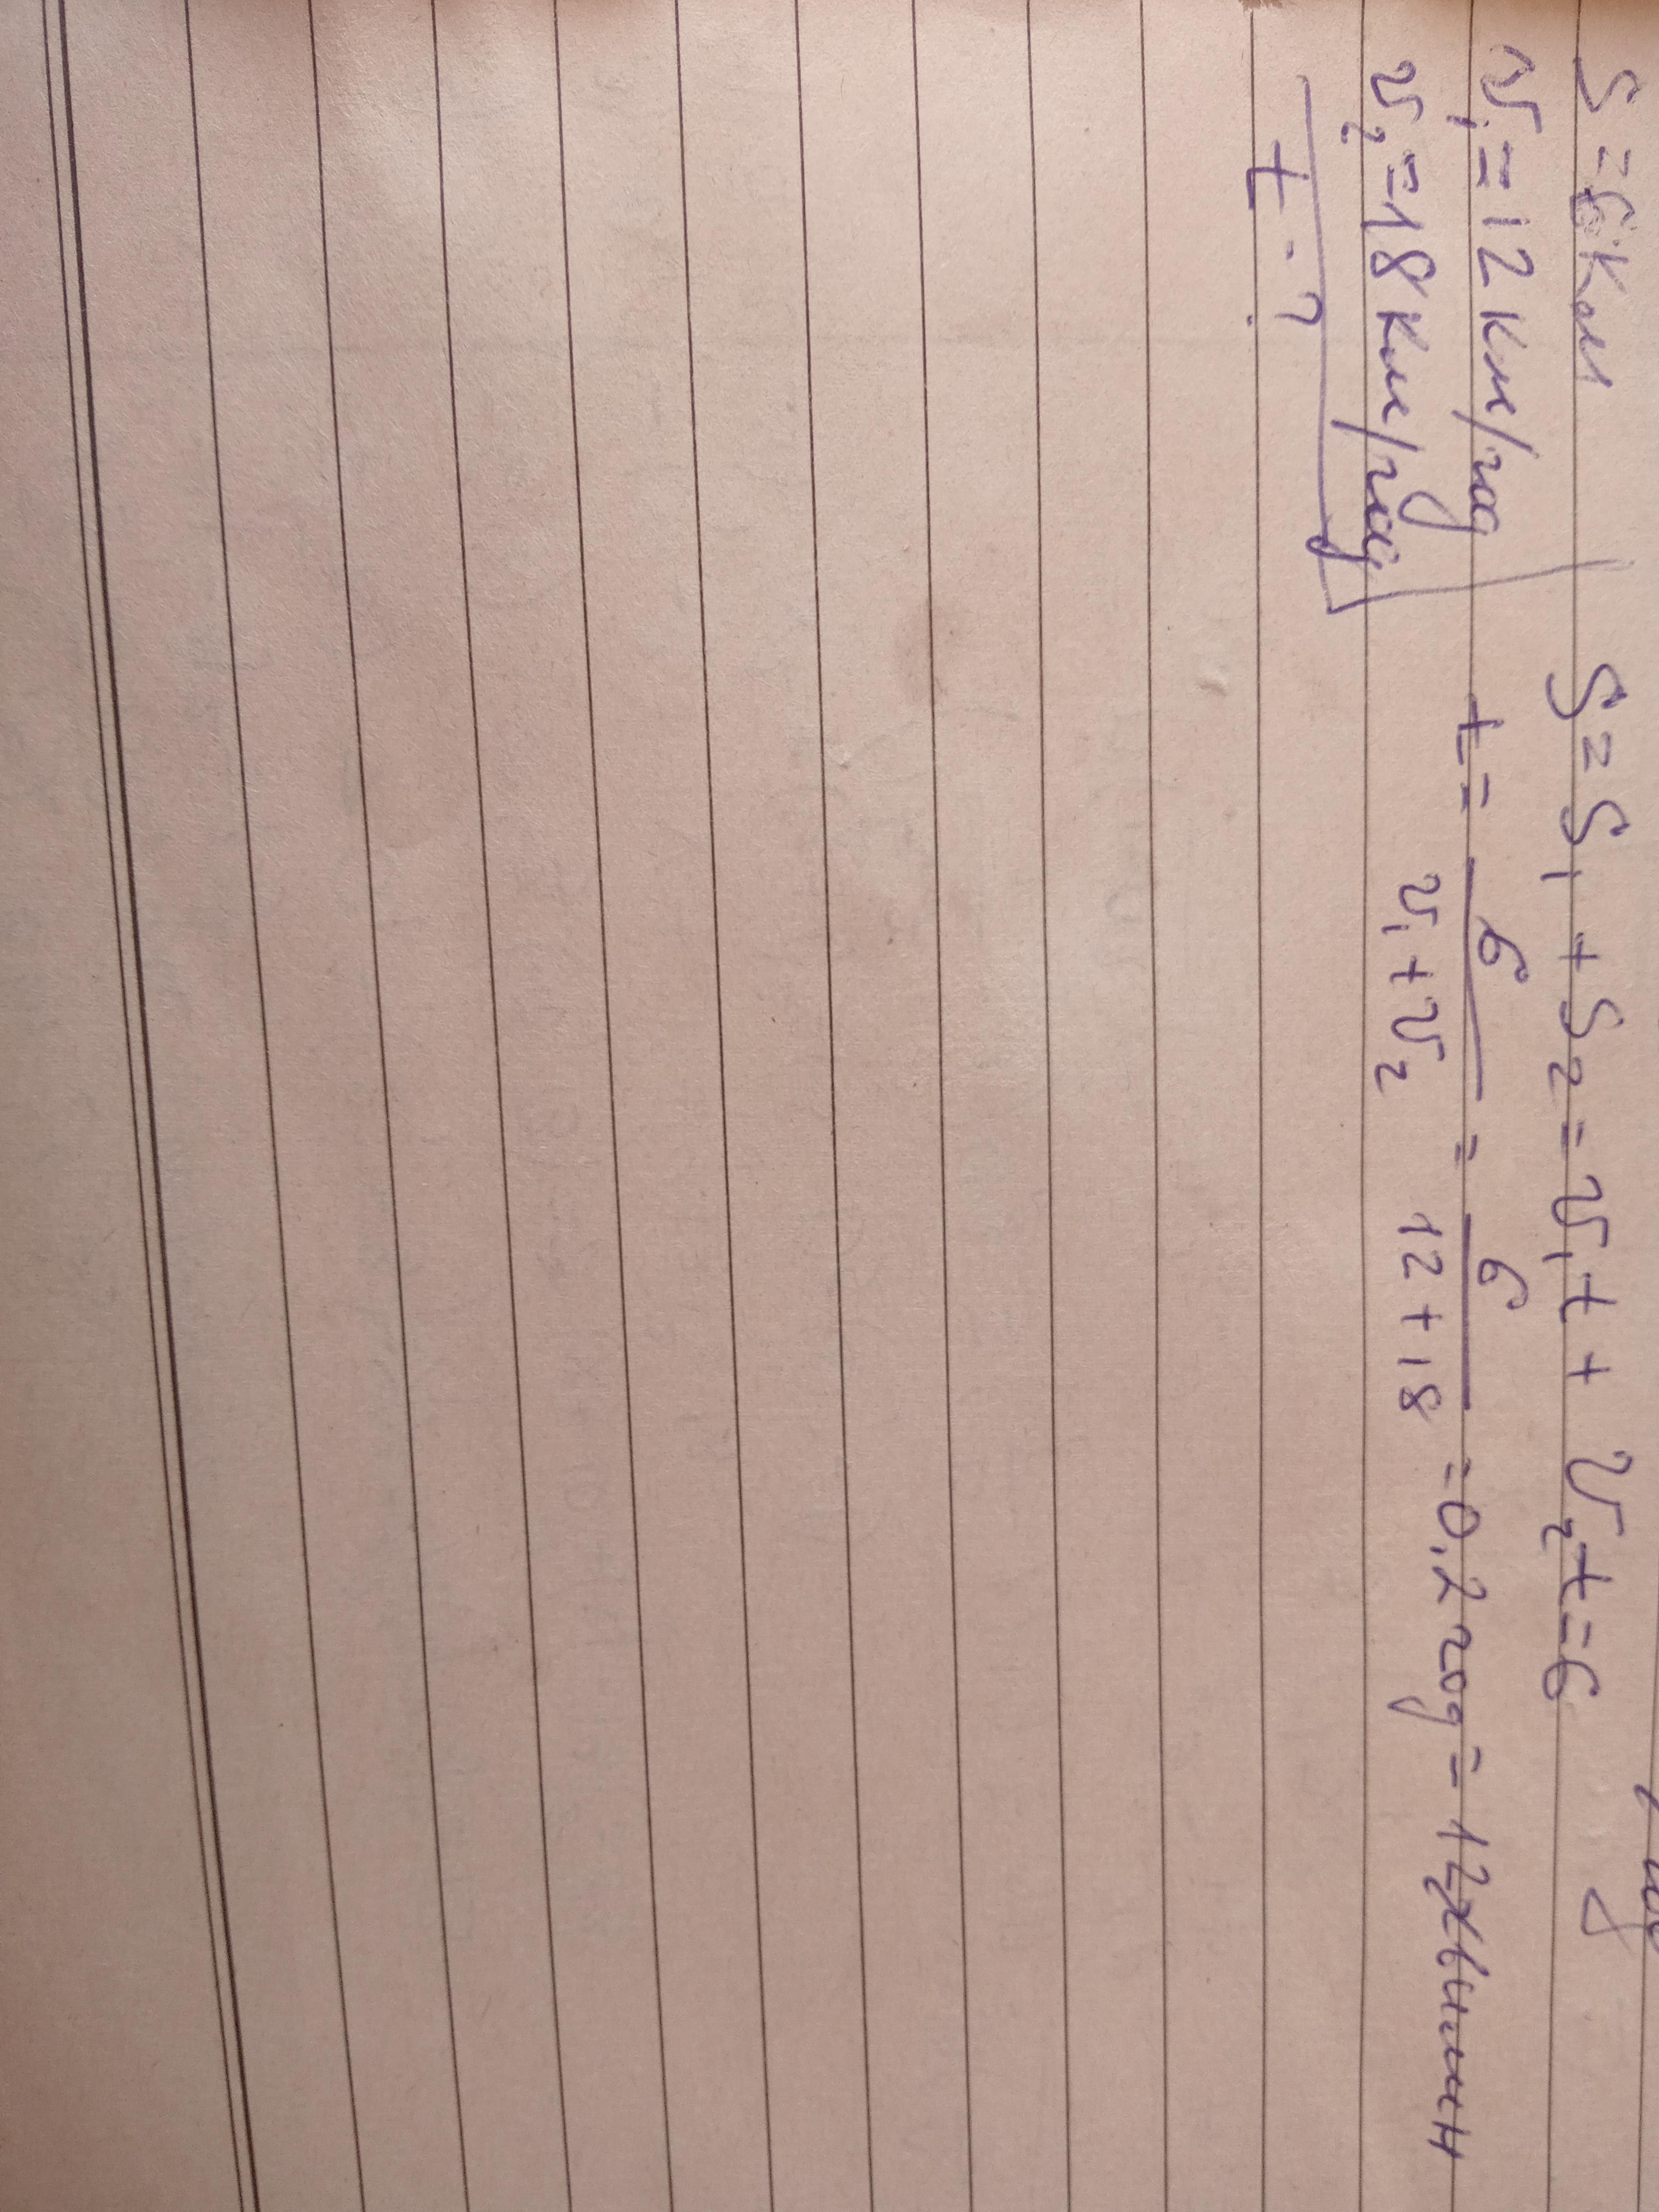 S = 6 км
v₁ = 12 км/год
v₂ = 18 км/год
t - ?
S = S₁ + S₂ = v₁t + v₂t = 6
t = 6 / (v₁ + v₂) = 6 / (12 + 18) = 0,2 год = 12 хвилин